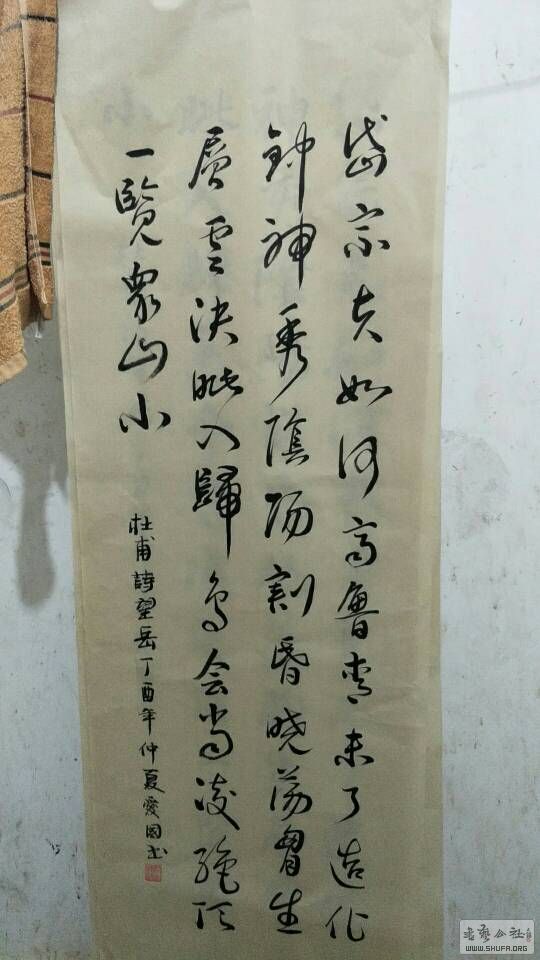 岱宗夫如何齊魯青未了造化
鈡神秀陰陽割昏曉蕩胷生
層雲決眦入歸鳥会當凌絕頂
一覽衆山小
杜甫詩望岳丁酉年仲夏愛國书
書藝公社
WWW.SHUFA.ORG